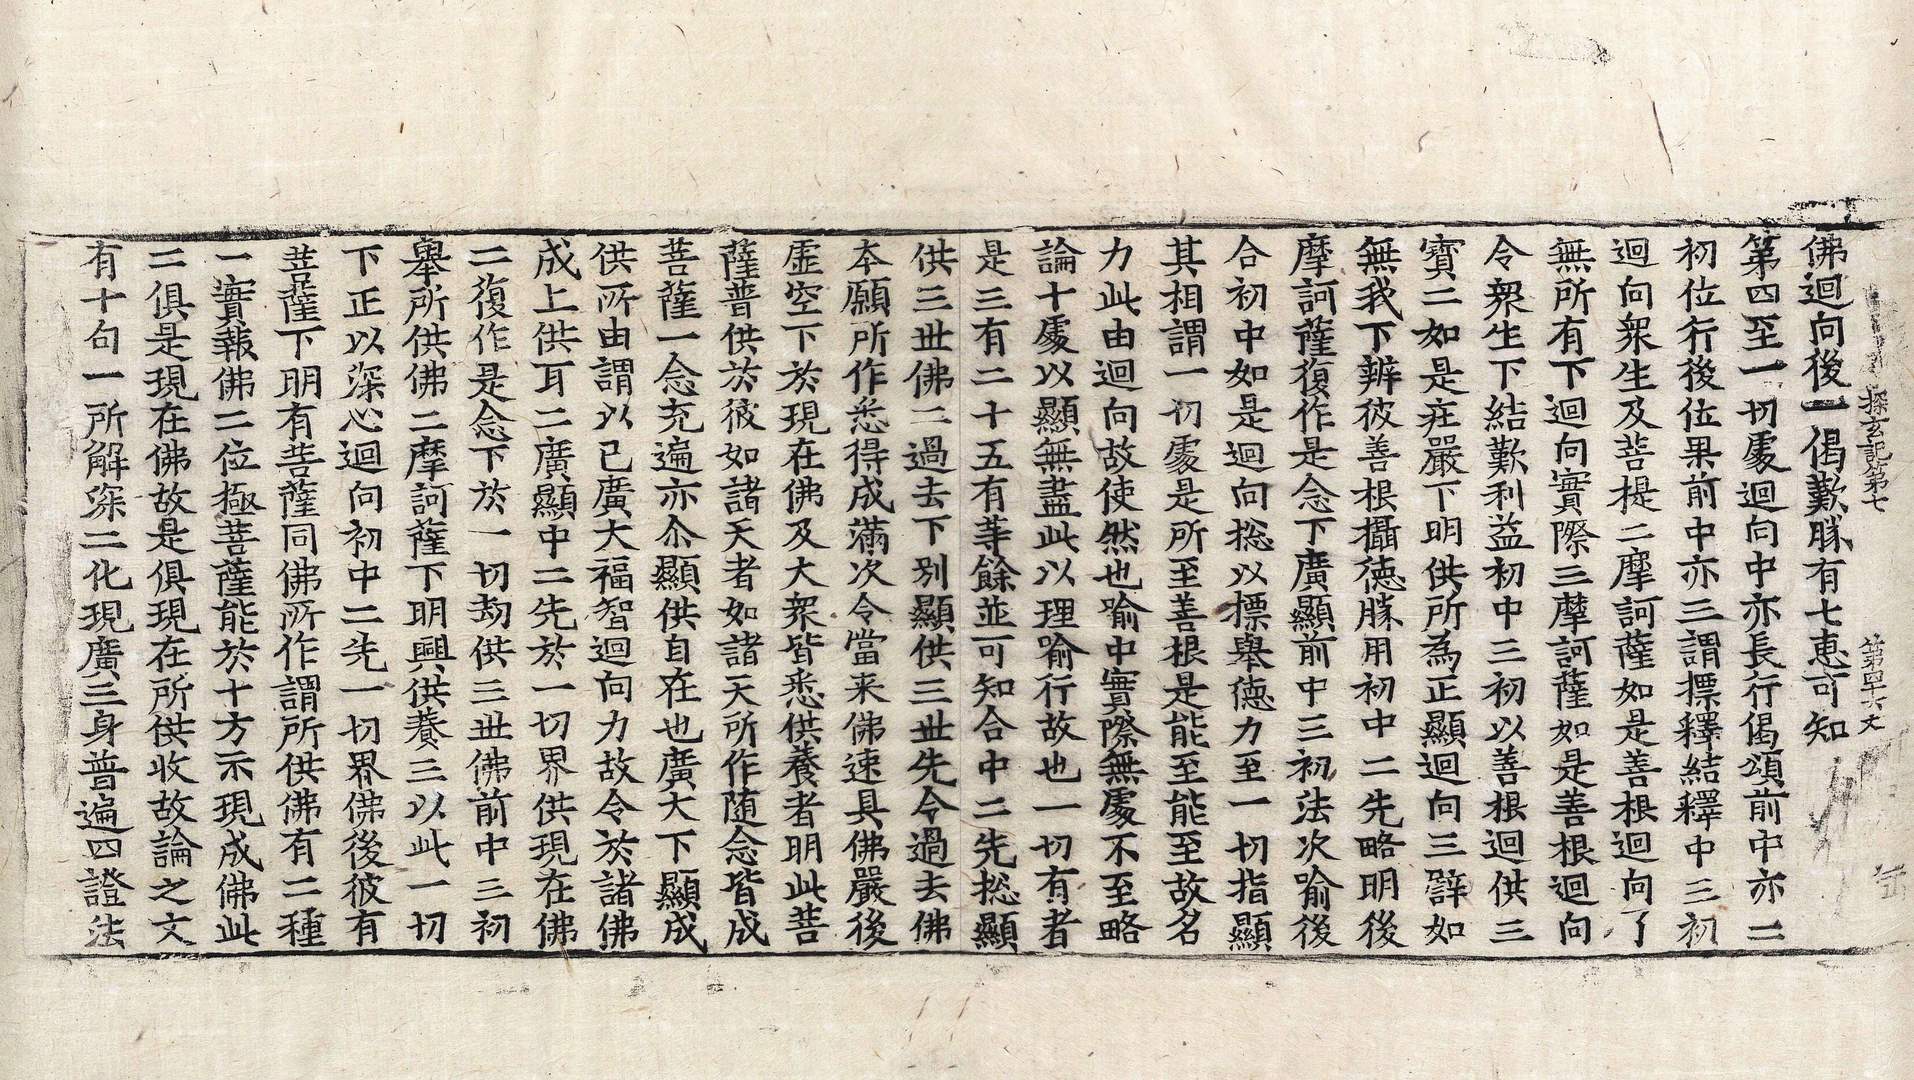 探玄記第七　第四十六丈
佛迴向後一偈歎勝有七恵可知
第四至一切處迴向中亦長行偈頌前中亦二
初位行後位果前中亦三謂摽釋結釋中三初
迴向衆生及菩提二摩訶薩如是善根迴向了
無所有下迴向實際三摩訶薩如是善根迴向
令衆生下結歎利益初中三初以善根迴供三
寳二如是庄嚴下明供所為正顯迴向三譬如
無我下辨彼善根攝德勝用初中二先略明後
摩訶薩復作是念下廣顯前中三初法次喻後
合初中如是迴向捴以摽舉德力至一切指顯
其相謂一切處是所至善根是能至能至故名
力此由迴向故使然也喻中實際無處不至略
論十處以顯無盡此以理喻行故也一切有者
是三有二十五有䓁餘並可知合中二先捴顯
供三丗佛二過去下别顯供三丗先令過去佛
本願所作悉得成滿次令當来佛速具佛嚴後
虛空下於現在佛及大衆皆悉供養者明此菩
薩普供於彼如諸天者如諸天所作随念皆成
菩薩一念充遍亦尒顯供自在也廣大下顯成
供所由謂以已廣大福智迴向力故令於諸佛
成上供耳二廣顯中二先於一切界供現在佛
二復作是念下於一切劫供三丗佛前中三初
舉所供佛二摩訶薩下明興供養三以此一切
下正以深心迴向初中二先一切界佛後彼有
菩薩下明有菩薩同佛所作謂所供佛有二種
一實報佛二位極菩薩能於十方示現成佛此
二俱是現在佛故是俱現在所供收故論之文
有十句一所解深二化現廣三身普遍四證法